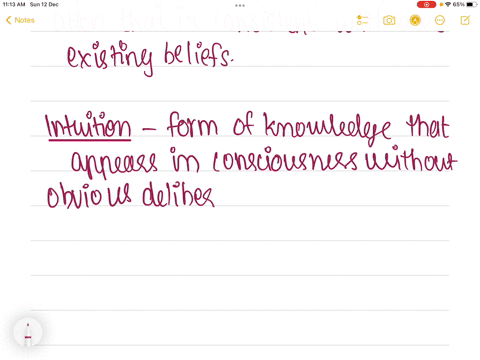 11:13 AM Sun 12 Dec
65%
Notes
existing beliefs.
Intuition - form of knowledge that
appears in consciousness without
obvious deliber